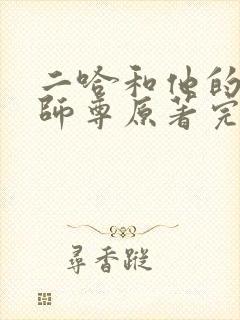 二哈和他的
師尊原著完
尋香蹤